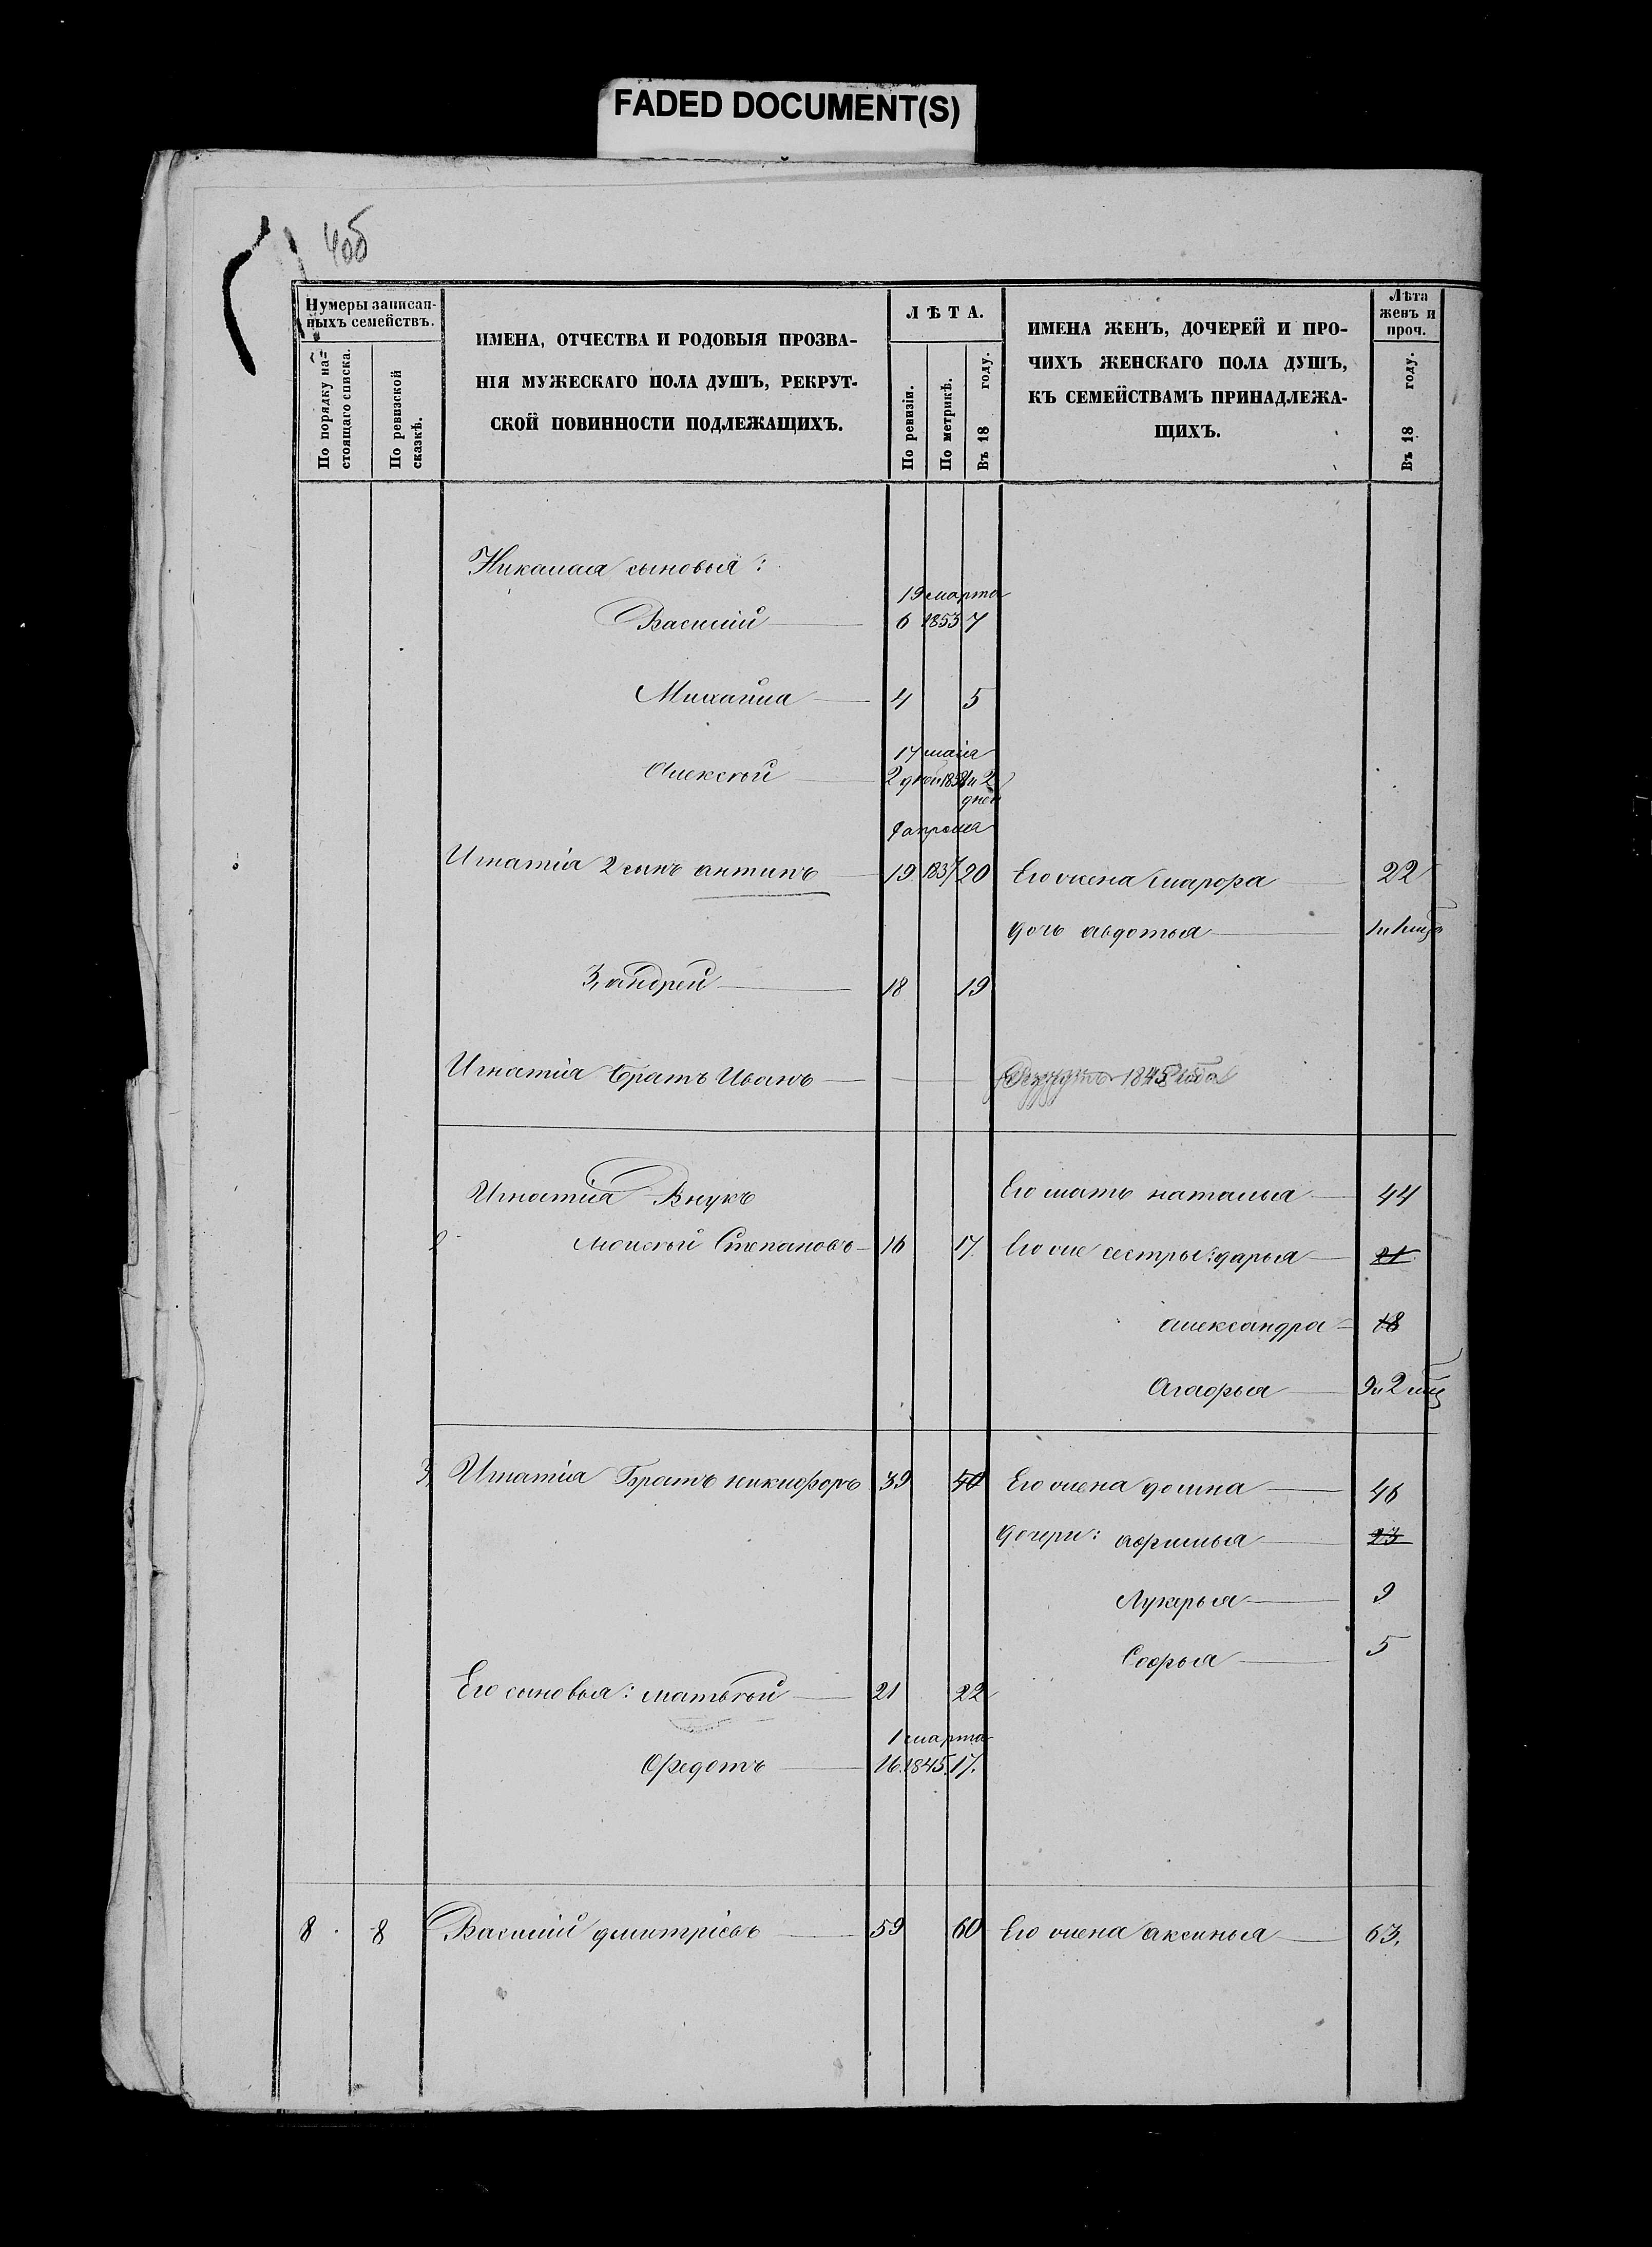 FADED DOCUMENT(S)
4об
Нумеры записан-
ныхъ семействъ.
По порядку на-
стоящаго списка.
По ревизской
сказкѣ.
ИМЕНА, ОТЧЕСТВА И РОДОВЫЯ ПРОЗВА-
НІЯ МУЖЕСКАГО ПОЛА ДУШЪ, РЕКРУТ-
СКОЙ ПОВИННОСТИ ПОДЛЕЖАЩИХЪ.
ЛѢТА.
По ревизіи.
По метрикѣ.
Въ 18 году.
ИМЕНА ЖЕНЪ, ДОЧЕРЕЙ И ПРО-
ЧИХЪ ЖЕНСКАГО ПОЛА ДУШЪ,
КЪ СЕМЕЙСТВАМЪ ПРИНАДЛЕЖА-
ЩИХЪ.
Лѣта
женъ и
проч.
Въ 18 году.
Никалая сыновья:
19 марта
Василій 6 1853 7
Михайла 4 5
17 маія
Алексѣй 2 дней 1858 и 2
дней
апреля
Игнатія 2 сынъ антипъ 19 1837 20 Его жена марфа 22
дочь авдотья
3, андрей 18 19
Игнатія братъ Иванъ 1845 года
Игнатія Внукъ Его мать наталья 44
2 моисѣй Степановъ 16 17. Его же сестры: дарья 21
александра 18
Агафья 9 и 2 мѣс
3, Игнатія братъ никифоръ 39 40 Его жена домна 46
дочери: афимья 23
Лукерья 9
Софья 5
Его сыновья: матвѣй 21 22
1 марта
Федотъ 16. 1845. 17.
8 8 Василій дмитріевъ 59 60 Его жена аксинья 63.